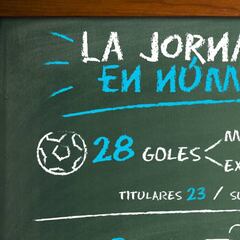 LA JORNA
EN NÚM
28 GOLES
M
EX
TITULARES 23 / SU